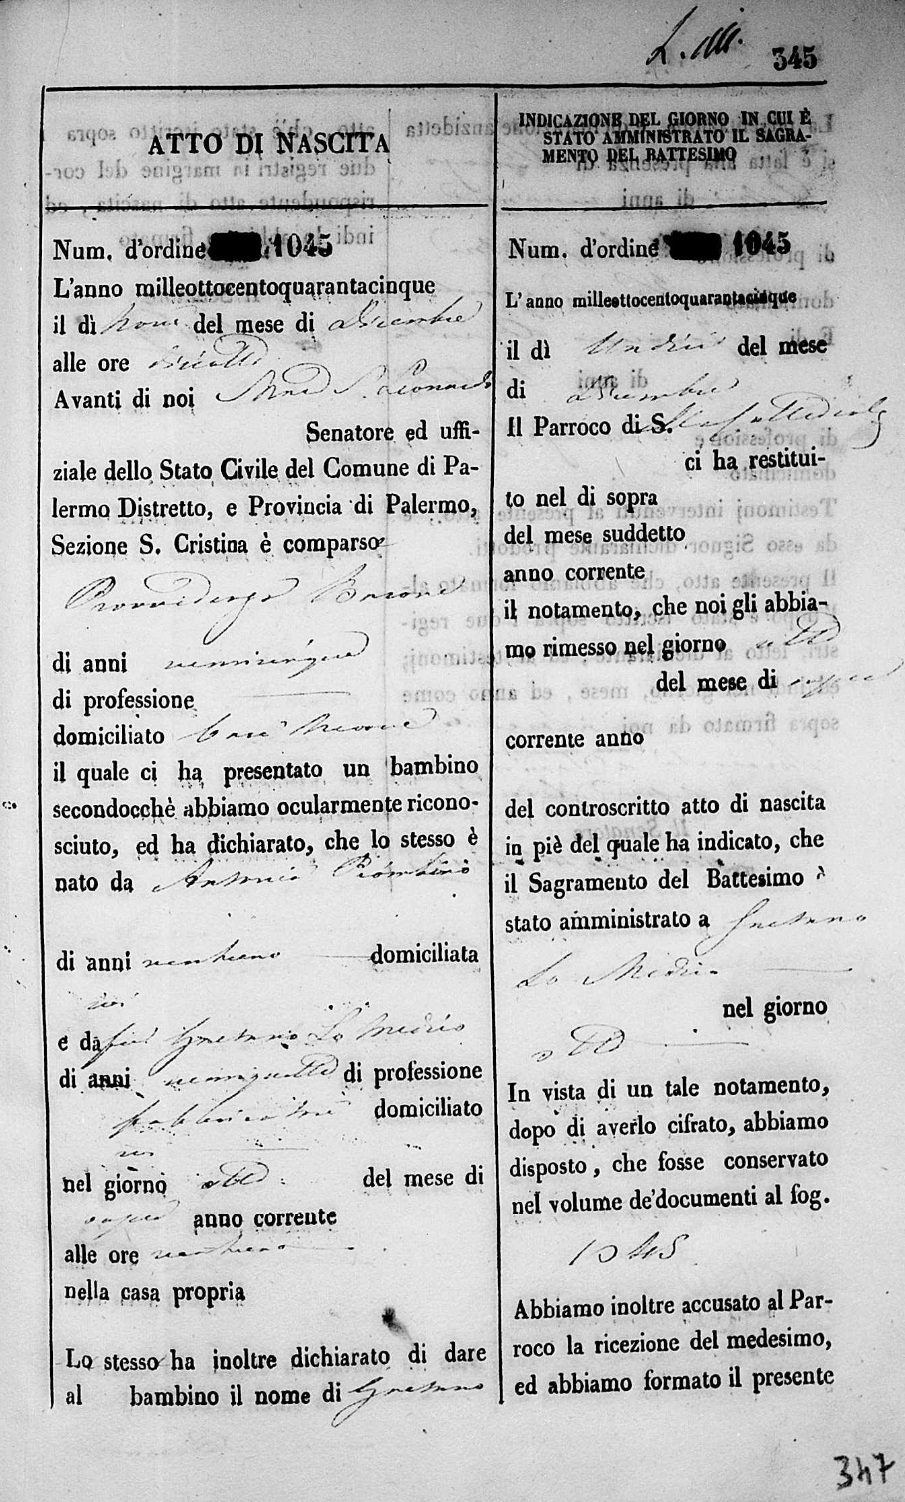 345
ATTO DI NASCITA
Num. d'ordine 1045
L'anno milleottocentoquarantacinque
il dì nove del mese di Dicembre
alle ore
Avanti di noi
Senatore ed uffi-
ziale dello Stato Civile del Comune di Pa-
lermo Distretto, e Provincia di Palermo,
Sezione S. Cristina è comparso
Provvidenza
di anni
di professione
domiciliato
il quale ci ha presentato un bambino
secondocchè abbiamo ocularmente ricono-
sciuto, ed ha dichiarato, che lo stesso è
nato da Antonia Piombino
di anni ventuno domiciliata
ivi
e da Gaetano Lo Medico
di anni di professione
domiciliato
ivi
nel giorno otto del mese di
sopra anno corrente
alle ore ventuno
nella casa propria
Lo stesso ha inoltre dichiarato di dare
al bambino il nome di Gaetano
INDICAZIONE DEL GIORNO IN CUI È
STATO AMMINISTRATO IL SAGRA-
MENTO DEL BATTESIMO
Num. d'ordine 1045
L'anno milleottocentoquarantacinque
il dì Undici del mese
di Dicembre
Il Parroco di S.
ci ha restitui-
to nel di sopra
del mese suddetto
anno corrente
il notamento, che noi gli abbia-
mo rimesso nel giorno otto
del mese di sopra
corrente anno
del controscritto atto di nascita
in piè del quale ha indicato, che
il Sagramento del Battesimo è
stato amministrato a Gaetano
Lo Medico
nel giorno
otto
In vista di un tale notamento,
dopo di averlo cifrato, abbiamo
disposto, che fosse conservato
nel volume de'documenti al fog.
1045
Abbiamo inoltre accusato al Par-
roco la ricezione del medesimo,
ed abbiamo formato il presente
347